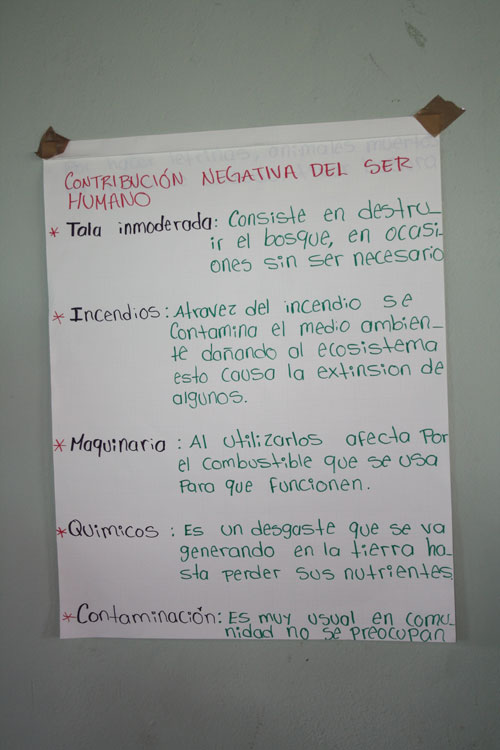 hacer letrinas, animales muertos
CONTRIBUCIÓN NEGATIVA DEL SER
HUMANO
* Tala inmoderada: Consiste en destru_
ir el bosque, en ocasi_
ones sin ser necesario
* Incendios: Atravez del incendio se
Contamina el medio ambien_
te dañando al ecosistema
esto causa la extinsion de
algunos.
* Maquinaria : Al utilizarlos afecta Por
el combustible que se usa
Para que funcionen.
* Quimicos : Es un desgaste que se va
generando en la tierra ha_
sta perder sus nutrientes
* Contaminación: Es muy usual en comu_
nidad no se preocupan